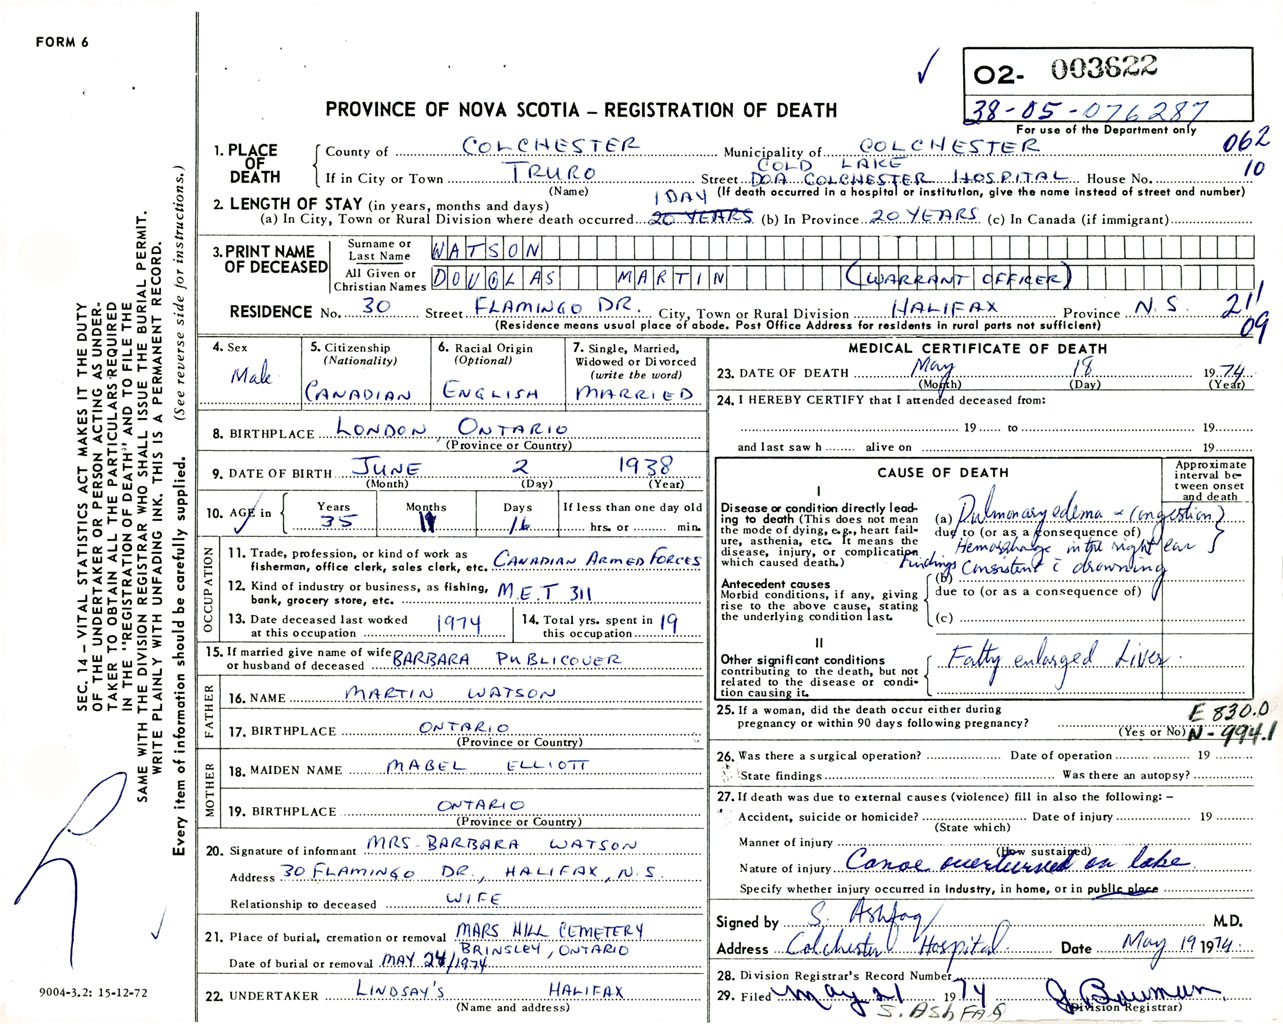 FORM 6
O2- 003622
38-05-076287
For use of the Department only
PROVINCE OF NOVA SCOTIA – REGISTRATION OF DEATH
062
10
1. PLACE OF DEATH
County of COLCHESTER Municipality of COLCHESTER
COLD LAKE
If in City or Town TRURO Street DOA COLCHESTER HOSPITAL House No.
(Name) (If death occurred in a hospital or institution, give the name instead of street and number)
2. LENGTH OF STAY (in years, months and days) 1 DAY
(a) In City, Town or Rural Division where death occurred 20 YEARS (b) In Province 20 YEARS (c) In Canada (if immigrant)
3. PRINT NAME OF DECEASED
Surname or Last Name WATSON
All Given or Christian Names DOUGLAS MARTIN (WARRANT OFFICER)
RESIDENCE No. 30 Street FLAMINGO DR. City, Town or Rural Division HALIFAX Province N.S.
(Residence means usual place of abode. Post Office Address for residents in rural parts not sufficient)
211
09
4. Sex Male
5. Citizenship (Nationality) CANADIAN
6. Racial Origin (Optional) ENGLISH
7. Single, Married, Widowed or Divorced (write the word) MARRIED
8. BIRTHPLACE LONDON, ONTARIO
(Province or Country)
9. DATE OF BIRTH JUNE 2 1938
(Month) (Day) (Year)
10. AGE in Years 35 Months 11 Days 16 If less than one day old hrs. or min.
OCCUPATION
11. Trade, profession, or kind of work as fisherman, office clerk, sales clerk, etc. CANADIAN ARMED FORCES
12. Kind of industry or business, as fishing, bank, grocery store, etc. M.E.T 311
13. Date deceased last worked at this occupation 1974
14. Total yrs. spent in this occupation 19
15. If married give name of wife or husband of deceased BARBARA PUBLICOVER
FATHER
16. NAME MARTIN WATSON
17. BIRTHPLACE ONTARIO
(Province or Country)
MOTHER
18. MAIDEN NAME MABEL ELLIOTT
19. BIRTHPLACE ONTARIO
(Province or Country)
20. Signature of informant MRS. BARBARA WATSON
Address 30 FLAMINGO DR., HALIFAX, N.S.
Relationship to deceased WIFE
21. Place of burial, cremation or removal MARS HILL CEMETERY
BRINSLEY, ONTARIO
Date of burial or removal MAY 24/1974
22. UNDERTAKER LINDSAY'S HALIFAX
(Name and address)
MEDICAL CERTIFICATE OF DEATH
23. DATE OF DEATH May 18 1974
(Month) (Day) (Year)
24. I HEREBY CERTIFY that I attended deceased from:
19 to 19
and last saw h alive on 19
CAUSE OF DEATH
Approximate interval between onset and death
I
Disease or condition directly leading to death (This does not mean the mode of dying, e.g., heart failure, asthenia, etc. It means the disease, injury, or complication which caused death.)
(a) Pulmonary edema - congestion)
due to (or as a consequence of)
Hemorrhage in the right ear
Findings consistent c drowning
Antecedent causes
Morbid conditions, if any, giving rise to the above cause, stating the underlying condition last.
(b)
due to (or as a consequence of)
(c)
II
Other significant conditions contributing to the death, but not related to the disease or condition causing it.
Fatty enlarged Liver.
25. If a woman, did the death occur either during pregnancy or within 90 days following pregnancy?
(Yes or No)
E 830.0
N-994.1
26. Was there a surgical operation? Date of operation 19
State findings Was there an autopsy?
27. If death was due to external causes (violence) fill in also the following: –
Accident, suicide or homicide? Date of injury 19
(State which)
Manner of injury
(How sustained)
Nature of injury Canoe overturned on lake
Specify whether injury occurred in industry, in home, or in public place
Signed by S. Ashfaq M.D.
Address Colchester Hospital Date May 19 1974.
28. Division Registrar's Record Number
29. Filed May 21 1974 J Bowman
(Division Registrar)
S. ASHFAQ
SEC. 14 – VITAL STATISTICS ACT MAKES IT THE DUTY
OF THE UNDERTAKER OR PERSON ACTING AS UNDER-
TAKER TO OBTAIN ALL THE PARTICULARS REQUIRED
IN THE "REGISTRATION OF DEATH" AND TO FILE THE
SAME WITH THE DIVISION REGISTRAR WHO SHALL ISSUE THE BURIAL PERMIT.
WRITE PLAINLY WITH UNFADING INK. THIS IS A PERMANENT RECORD.
Every item of information should be carefully supplied. (See reverse side for instructions.)
9004-3.2: 15-12-72